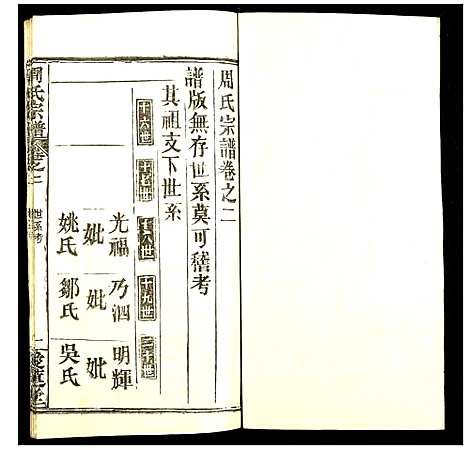 周氏宗譜卷之二
譜版無存世系莫可稽考
其祖支下世系
十六世
十七世
十八世
十九世
二十世
光福
妣
姚氏
乃泗
妣
鄒氏
明輝
妣
吳氏
周氏宗譜
卷之二
世系考